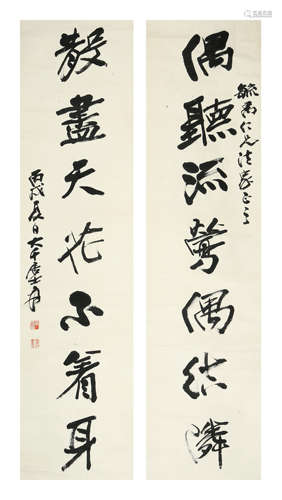 偶聽流鶯偶結隣
仁兄法家正之
散盡天花不着身
丙戌夏日大千居士爰